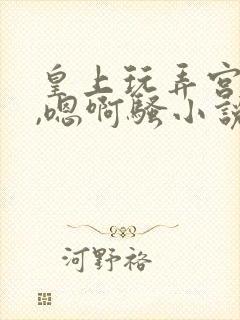 皇上玩弄宫
,嗯啊骚小说
河野裕